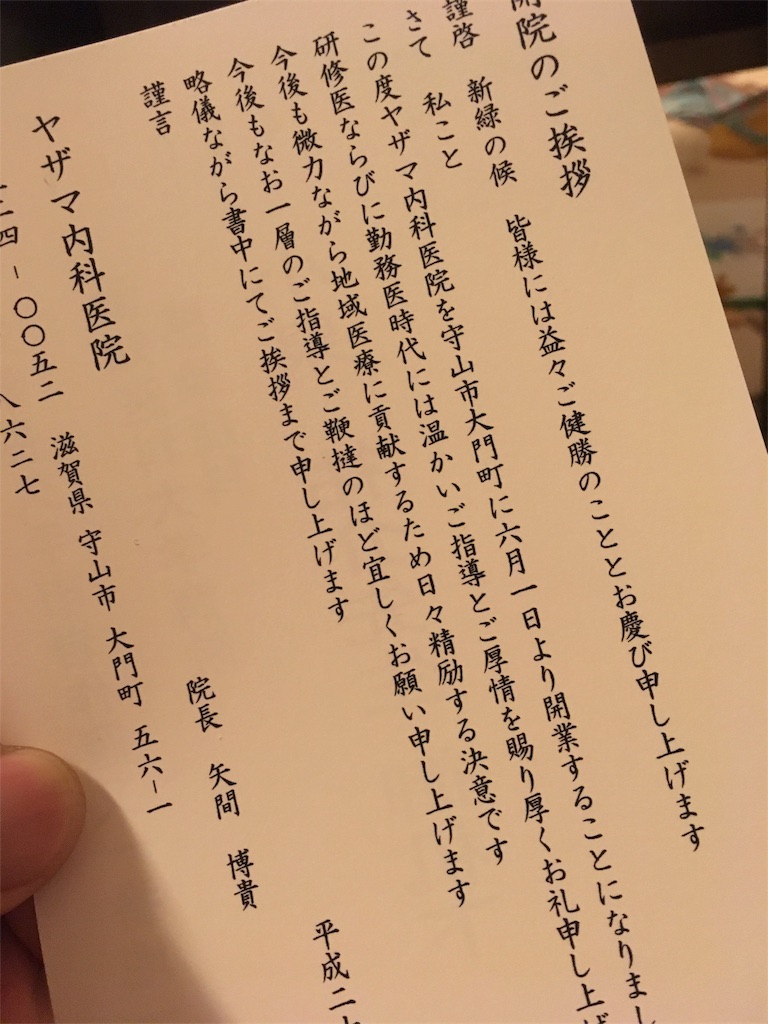 院のご挨拶
謹啓 新緑の候 皆様には益々ご健勝のこととお慶び申し上げます
さて 私こと
この度ヤザマ内科医院を守山市大門町に六月一日より開業することになりまし
研修医ならびに勤務医時代には温かいご指導とご厚情を賜り厚くお礼申し上げ
今後も微力ながら地域医療に貢献するため日々精励する決意です
今後もなお一層のご指導とご鞭撻のほど宜しくお願い申し上げます
略儀ながら書中にてご挨拶まで申し上げます
謹言
平成二
院長 矢間 博貴
ヤザマ内科医院
四-〇〇五二 滋賀県 守山市 大門町 五六-一
八六二七